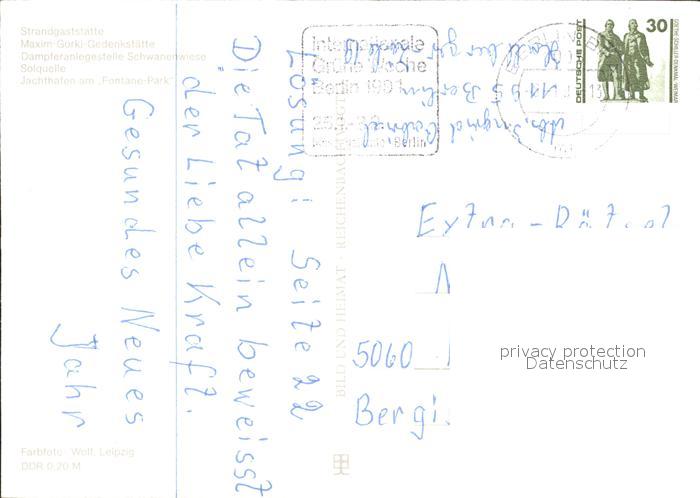 Strandgaststätte
Maxim-Gorki-Gedenkstätte
Dampferanlegestelle Schwanenwiese
Solquelle
Jachthafen am „Fontane-Park“
Lösung: Seite 22
Die Tat allein beweisst
der Liebe Kraft.
Gesundes Neues
Jahr
Farbfoto: Wolf, Leipzig
DDR 0,20 M
BILD UND HEIMAT · REICHENBACH
Internationale
Grüne Woche
Berlin 1991
Berlin
BERLIN
DEUTSCHE POST
30
GOETHE-SCHILLER-DENKMAL, WEIMAR
Abs. Ingrid
1195 Berlin
Extra-Rätsel
5060
Bergi
privacy protection
Datenschutz